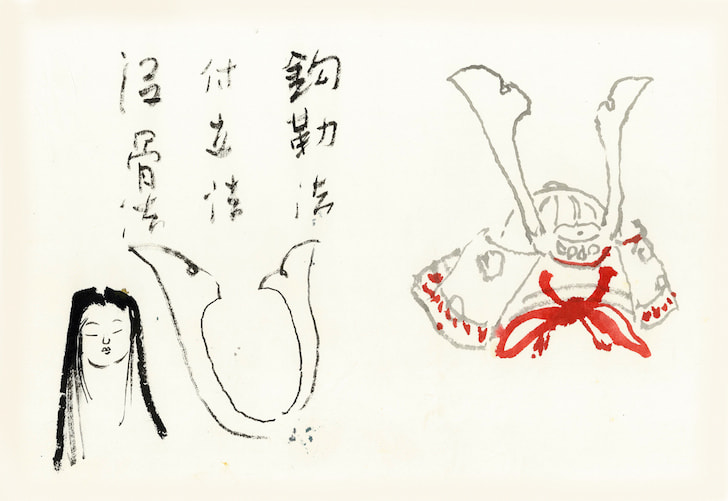 鈎勒法
付立法
没骨法